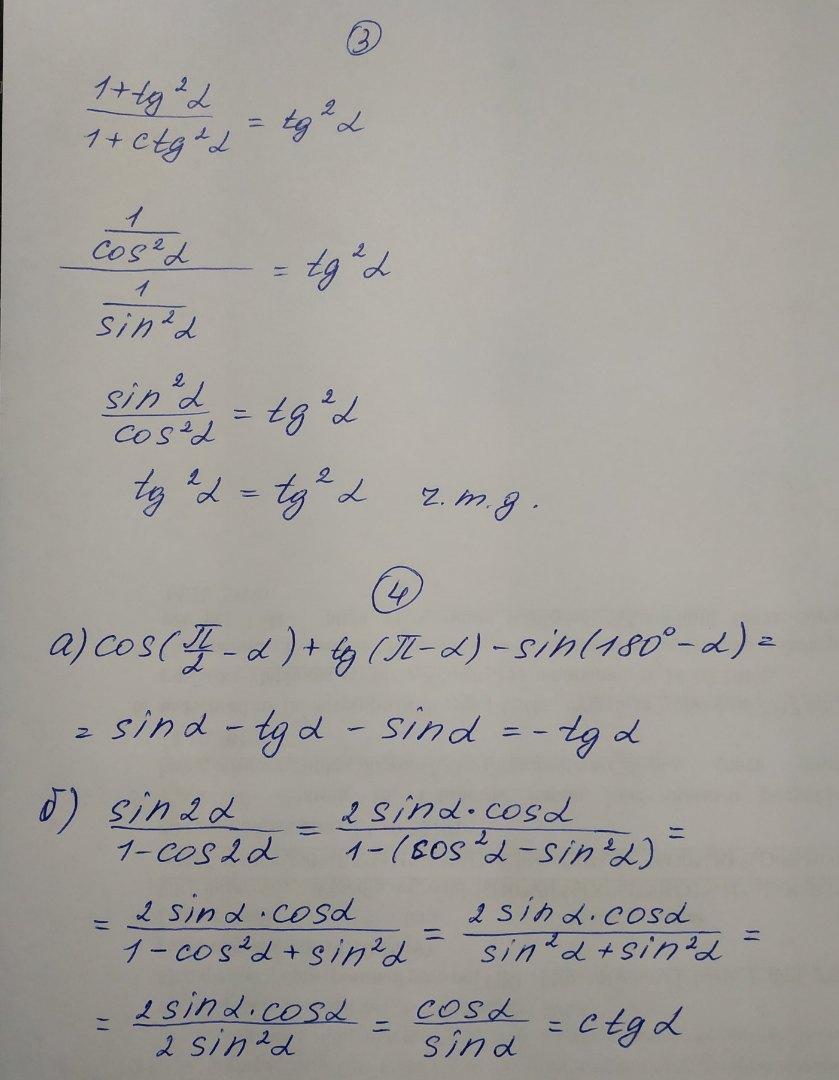 3
(1+tg²α)/(1+ctg²α) = tg²α
(1/cos²α)/(1/sin²α) = tg²α
sin²α/cos²α = tg²α
tg²α = tg²α ч.т.д.
4
а) cos(π/2 - α) + tg(π - α) - sin(180° - α) =
= sinα - tgα - sinα = - tgα
б) sin2α/(1-cos2α) = (2sinα·cosα)/(1-(cos²α-sin²α)) =
= (2sinα·cosα)/(1-cos²α+sin²α) = (2sinα·cosα)/(sin²α+sin²α) =
= (2sinα·cosα)/(2sin²α) = cosα/sinα = ctgα